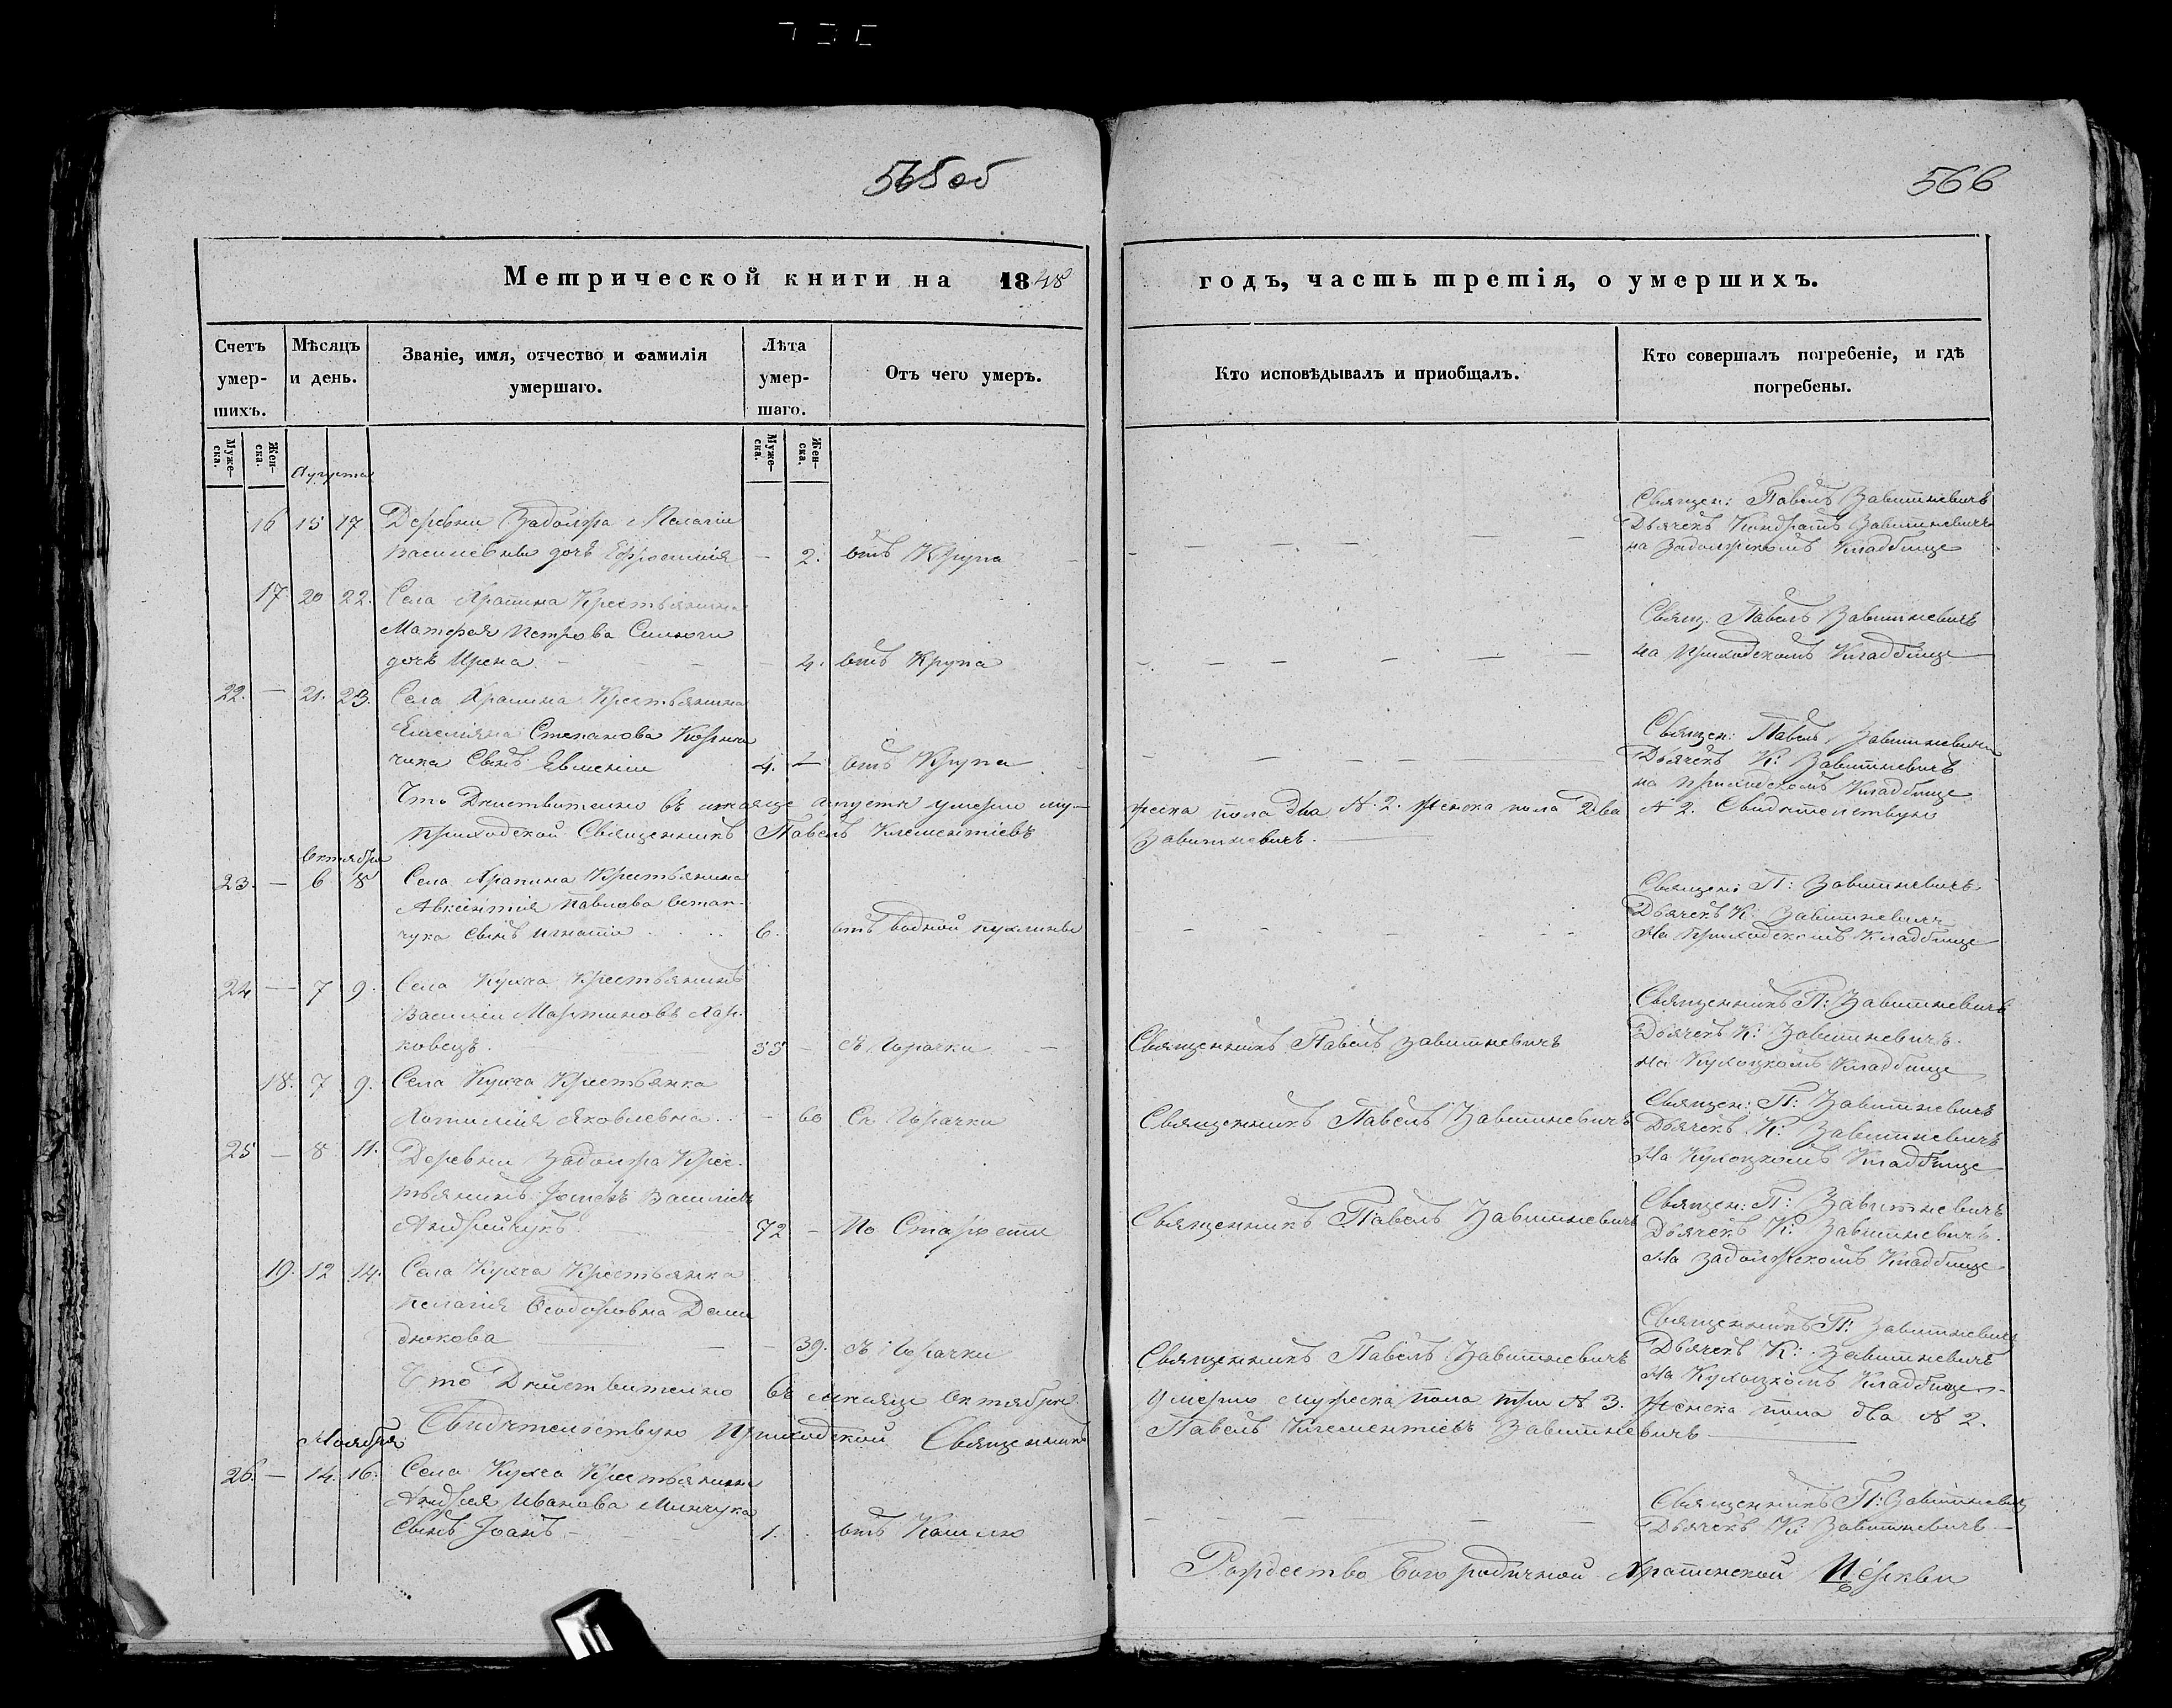 565 об
566
Метрической книги на 1848
годъ, часть третія, о умершихъ.
Счетъ умер- шихъ.
Мѣсяцъ и день.
Званіе, имя, отчество и фамилія умершаго.
Лѣта умер- шаго.
Отъ чего умеръ.
Кто исповѣдывалъ и пріобщалъ.
Кто совершалъ погребеніе, и гдѣ погребены.
Муже- ска.
Жен- ска.
Муже- ска.
Жен- ска.
Августа
16 15 17 Деревни Задолжа Пелагіи
Василіевны дочь Ефросинія — 2. отъ Крупа
Священ: Павелъ Завитневичъ
Дьячекъ Кондратъ Завитневичъ
на Задолжскомъ Кладбище
17 20 22. Села Храпина Крестьянина
Матфея Петрова
дочь Ирена — 4. отъ Крупа
Свящ: Павелъ Завитневичъ
на Приходскомъ Кладбище
22. — 21. 23. Села Храпина Крестьянина
Емеліяна Степанова Корни
чика Сынъ Евменій 4. — отъ Крупа
Священ: Павелъ Завитневичъ
Дьячекъ К: Завитневичъ
на Приходскомъ Кладбище
Что Дѣйствительно въ мѣсяце Августѣ умерло му-
жеска пола два № 2. женска пола два № 2. Свидѣтельствую
Приходской Священникъ Павелъ Клементіевъ
Завитневичъ.
Октября
23. — 6 8 Села Храпина Крестьянина
Авксентія Павлова Остап-
чука сынъ Игнатій 6. отъ водной пухлины
Священ: П: Завитневичъ
Дьячекъ К: Завитневичъ
На Приходскомъ Кладбище
24 — 7 9. Села Кухча Крестьянинъ
Василій Мартиновъ Хар-
ковецъ. 55 — съ Горачки
Священникъ Павелъ Завитневичъ
Священникъ П: Завитневичъ
Дьячекъ К: Завитневичъ.
на Кухоцкомъ Кладбище
18. 7 9. Села Кухча Крестьянка
Яковлевна — 60 Съ Горачки
Священникъ Павелъ Завитневичъ
Священ: П: Завитневичъ
Дьячекъ К: Завитневичъ
На Кухоцкомъ Кладбище
25 — 8 11. Деревни Задолжа Крес-
тьянинъ Іосифъ Василіевъ
Андрійчукъ 72 — По Старости
Священникъ Павелъ Завитневичъ
Священ: П: Завитневичъ
Дьячекъ К: Завитневичъ.
На Задолжскомъ Кладбище
19. 12 14. Села Кухча Крестьянка
Пелагія Ѳеодоровна Деми
дюкова — 39. съ Горачки
Священникъ Павелъ Завитневичъ
Священникъ П: Завитневичъ
Дьячекъ К: Завитневичъ
На Кухоцкомъ Кладбище
Что Дѣйствительно въ мѣсяце Октябрѣ
умерло мужеска пола три № 3. женска пола два № 2.
Свидѣтельствую Приходской Священникъ
Павелъ Клементіевъ Завитневичъ
Ноября
26. — 14. 16. Села Кухча Крестьянина
Андрея Иванова Минчука
Сынъ Іоанъ 1. отъ Кашлю
Священникъ П: Завитневичъ
Дьячекъ К: Завитневичъ
Рождество Богородичной Храпинской Церкви